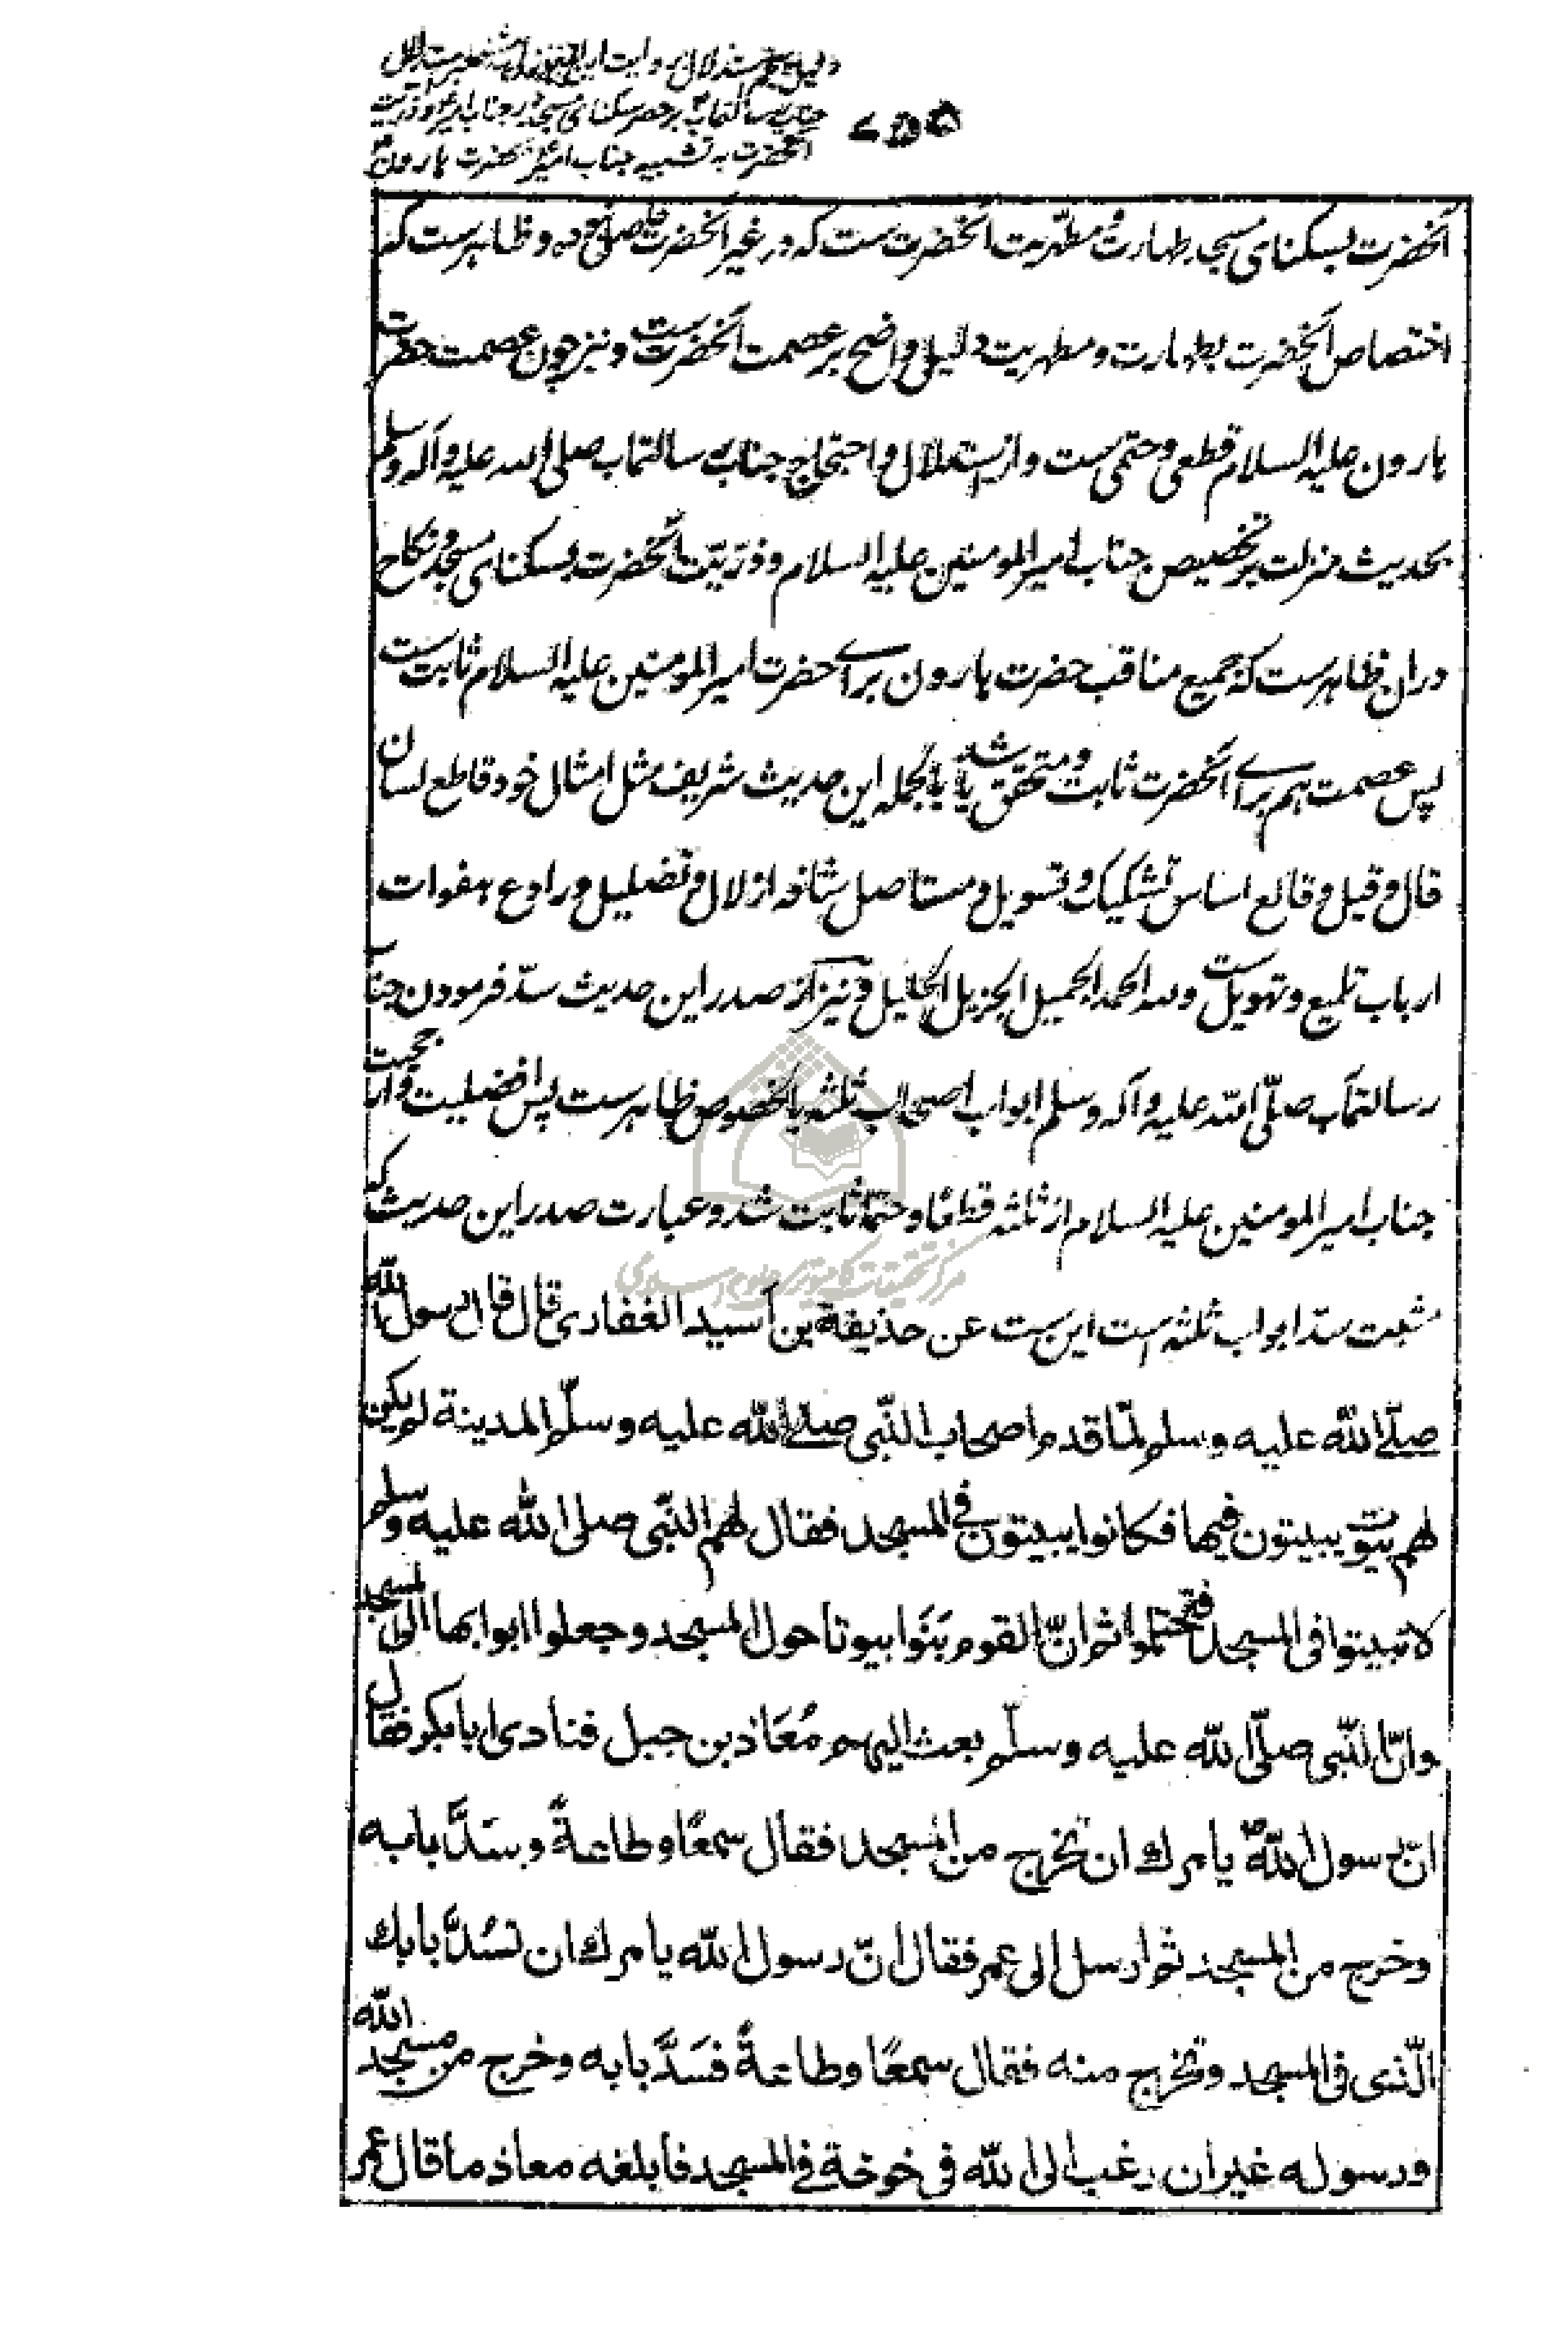 دلیل پنجم استدلال بروایت ابن
جناب رسالتمآب بر حصر سکنای مسجد در جناب امیرؑ و ذریت
آنحضرت به تشبیه جناب امیرؑ بحضرت هارونؑ
۷۵۵
آنحضرت بسکنای مسجد طهارت و مطهریت آنحضرت ست که در غیر آنحضرت حاصل نبوده و ظاهرست که
اختصاص آنحضرت بطهارت و مطهریت دلیلی واضح بر عصمت آنحضرت ست و نیز چون عصمت حضرت
هارون علیه السلام قطعی و حتمی ست و از استدلال و احتجاج جناب رسالتمآب صلی الله علیه و آله و سلم
بحدیث منزلت بر تخصیص جناب امیر المومنین علیه السلام و ذریّت آنحضرت بسکنای مسجد و نکاح
دران ظاهرست که جمیع مناقب حضرت هارون برای حضرت امیر المومنین علیه السلام ثابت ست
پس عصمت هم برای آنحضرت ثابت و متحقق باشد بالجمله این حدیث شریف مثل امثال خود قاطع لسان
قال و قیل و قالع اساس تشکیک و تسویل و مستاصل شانه ازلال و تضلیل و رادع هفوات
ارباب تلمیع و تهویل ست و لله الحمد الجمیل الجزیل الجلیل و نیز از صدر این حدیث سدّ فرمودن جناب
رسالتمآب صلّی الله علیه و آله و سلم ابواب اصحاب ثلثه بالخصوص ظاهرست پس افضلیت و ارجحیت
جناب امیر المومنین علیه السلام از ثلثه قطعًا و حتمًا ثابت شد و عبارت صدر این حدیث که
مثبت سدّ ابواب ثلثه است این ست عن حذیفة بن اسید الغفاری قال قال رسول الله
صلّی الله علیه و سلم لمّا قدم اصحاب النّبی صلی الله علیه و سلّم المدینة لم یکن
لهم بیوت یبیتون فیها فکانوا یبیتون فی المسجد فقال لهم النّبی صلی الله علیه و سلم
لا تبیتوا فی المسجد فتحتلموا ثم انّ القوم بَنَوا بیوتا حول المسجد و جعلوا ابوابها الی المسجد
و انّ النّبی صلّی الله علیه و سلّم بعث الیهم مُعَاذ بن جبل فنادی ابا بکر فقال
انّ رسول اللهؐ یامرک ان تخرج من المسجد فقال سمعًا و طاعةً و سَدَّ بابه
و خرج من المسجد ثم ارسل الی عمر فقال انّ رسول الله یامرک ان تسُدَّ بابک
الّذی فی المسجد و تخرج منه فقال سمعًا و طاعةً فسَدَّ بابه و خرج من مسجد الله
و رسوله غیر ان رغب الی الله فی خوخة فی المسجد فابلغه معاذ ما قال عمر
مرکز تحقیقات کامپیوتری علوم اسلامی